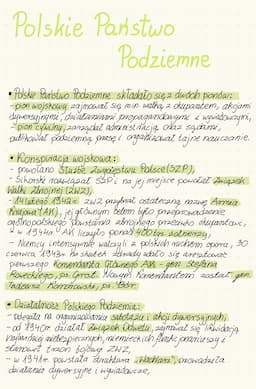 Polskie Państwo
Podziemne
• Polskie Państwo Podziemne składało się z dwóch pionów:
- pion wojskowy, zajmował się m.in. walką z okupantem, akcjami
dywersyjnymi, działaniami propagandowymi i wywiadowczymi,
- pion cywilny, zarządzał administracją oraz sądami,
publikował podziemną prasę i organizował tajne nauczanie.
• Konspiracja wojskowa:
- powołano Służbę Zwycięstwu Polsce (SZP),
- Sikorski rozwiązał SZP i na jej miejsce powołał Związek
Walki Zbrojnej (ZWZ),
- 14 lutego 1942r. ZWZ przyjął ostateczną nazwę Armia
Krajowa (AK), jej głównym celem było przeprowadzenie
ogólnopolskiego powstania zbrojnego przeciwko okupantowi,
- w 1944r. AK liczyło ponad 400tys. żołnierzy,
- Niemcy intensywnie walczyli z polskich ruchem oporu, 30
czerwca 1943r. na skutek zdrady udało się aresztować
pierwszego Komendanta Głównego AK - gen. Stefana
Roweckiego, ps. Grot. Nowym Komendantem został gen.
Tadeusz Komorowski, ps. Bór.
• Działalność Polskiego Podziemia:
- polegała na organizowaniu sabotażu i akcji dywersyjnych,
- od 1940r. działał Związek Odwetu, zajmował się likwidacją
najbardziej niebezpiecznych, niemieckich funkcjonariuszy i
stanowił trzon bojowy ZWZ,
- w 1941r. powstała struktura „Wachlarz", prowadziła
działania dywersyjne i wywiadowcze,